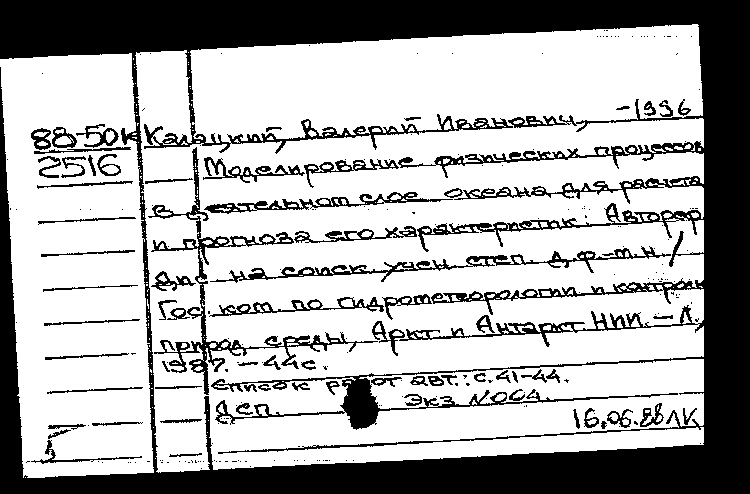 88-50К Калацкий, Валерий Иванович, -1996
2516 Моделирование физических процессов
в деятельном слое океана для расчета
и прогноза его характеристик: Автореф
дис на соиск. учен степ. д.ф.-м.н /
Гос ком. по гидрометеорологии и контролю
природ, среды, Аркт и Антаркт НИИ. - Л.,
1987. - 44с.
Список работ авт.: с. 41-44.
ДСП. Экз №004.
16.06.88 ЛК